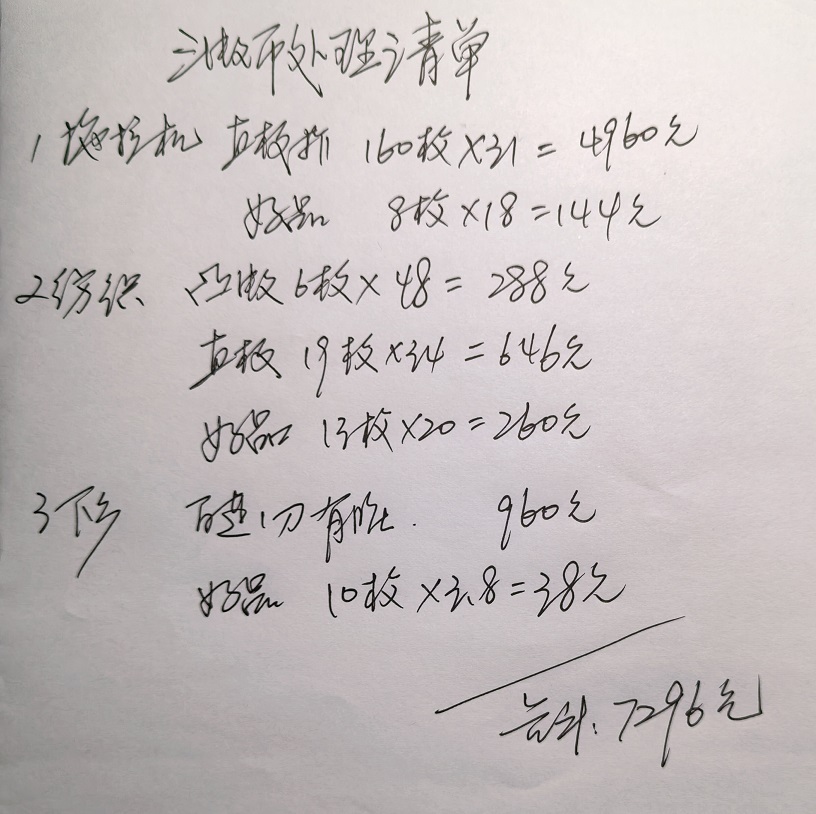 三版币处理清单
1 拖拉机 直板抓 160枚×31=4960元
好品 8枚×18=144元
2纺织 凸版6枚×48=288元
直板 19枚×34=646元
好品 13枚×20=260元
3下乡 百连1刀有 960元
好品 10枚×3.8=38元
合计:7296元